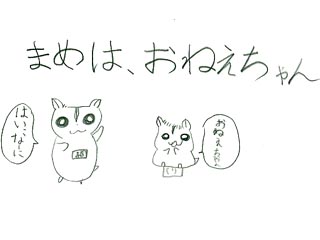 まめは、おねぇちゃん
はい、なーに
おねぇちゃん